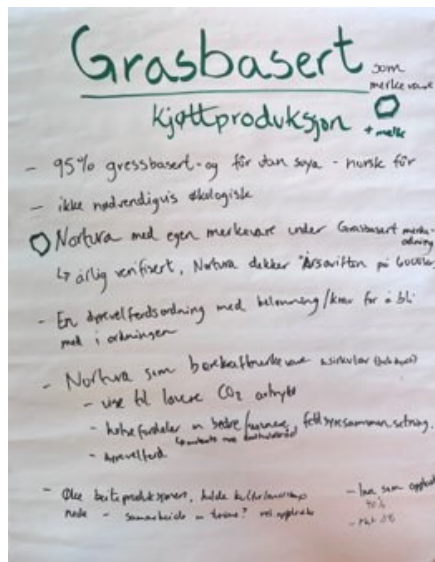 Grasbasert
som
merkevare
kjøttproduksjon
+ melk
- 95% gressbasert - og fôr utan soya - norsk fôr
- ikke nødvendigvis økologisk
Nortura med egen merkevare under Grasbasert merke-
ordning
↳ årlig verifisert, Nortura dekker årsavgiften på 6000kr
- En dyrevelferdsordning med belønning/krav for å bli
med i ordningen
- Nortura som bærekraftmerkevare
- vise til lavere CO2 avtrykk
- helsefordeler m bedre fettsyresammensetning.
- dyrevelferd
- Øke beiteproduksjonen, holde kulturlandskap
nede - samarbeide m
40%